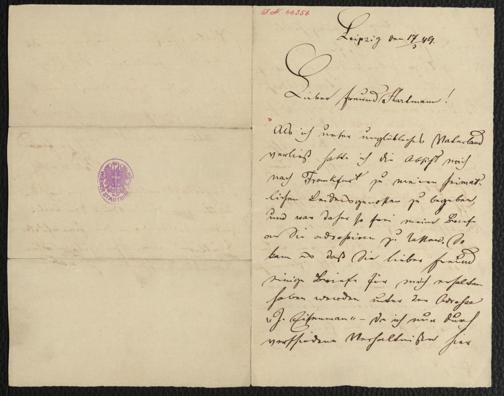 I.N. 44356
Leipzig den 17/3 49.
Lieber Freund Hartmann!
Als ich unser unglückliches Vaterland
verließ hatte ich die Absicht mich
nach Frankfurt zu meinen heimat-
lichen Leidensgenossen zu begeben
und war daher so frei meine Briefe
an Sie adressiren zu lassen. So
kam es daß Sie lieber Freund
einige Briefe für mich erhalten
haben werden unter der Adresse
"J. Eisenmann" – Da ich nun durch
verschiedene Verhältnisse hier